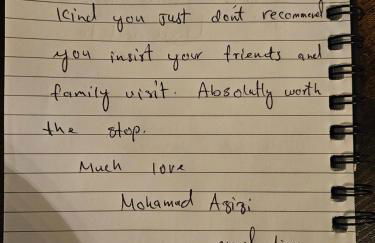 kind you just don't recommend
you insist your friends and
family visit. Absolutly worth
the stop.
Much love
Mohamad Azizi